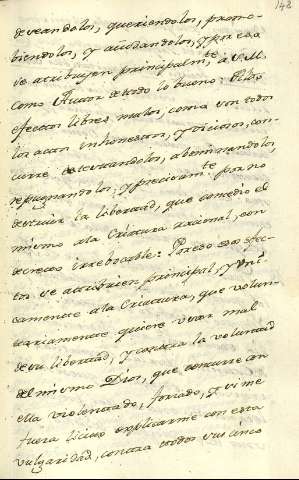 142
deseandolos, queriendolos, promo-
biendolos, y aiudandolos, y por esa
se atribuyen principalmte, à S. M.
como Autor de todo lo bueno: A los
efectos libres malos, como son todos
los actos inhonestos, y viciosos, con-
curre detestandolos, abominandolos,
repugnandolos, y precisamte. por no
destruir la libertad, que concedio el
mismo ala Criatura racional, con
decreto irrebocable: Por eso esos efec-
tos se atribuien principal, y uni-
camente ala Criatura, que volun-
tariamente quiere usar mal
de su libertad, y contra la voluntad
del mismo Dios, que concurre con
ella violentado, forzado, y si me
fuera licito explicarme con esta
vulgaridad, contra todos sus cinco